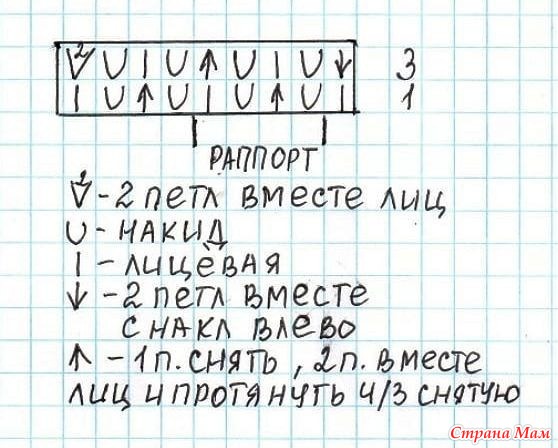 2
V U | U ↑ U | U ↓ 3
| U ↑ U | U ↑ U | 1
РАППОРТ
2
V - 2 ПЕТЛ ВМЕСТЕ ЛИЦ
U - НАКИД
| - ЛИЦЁВАЯ
↓ - 2 ПЕТЛ ВМЕСТЕ
С НАКЛ ВЛЕВО
↑ - 1 П. СНЯТЬ, 2 П. ВМЕСТЕ
ЛИЦ И ПРОТЯНУТЬ Ч/З СНЯТУЮ
Страна Мам